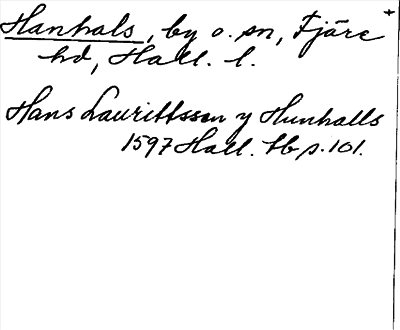 Hanhals, by o. sn, Fjäre
hd, Hall. l.
Hans Laurittssen y Hunhalls
1597 Hall. tb p. 101.